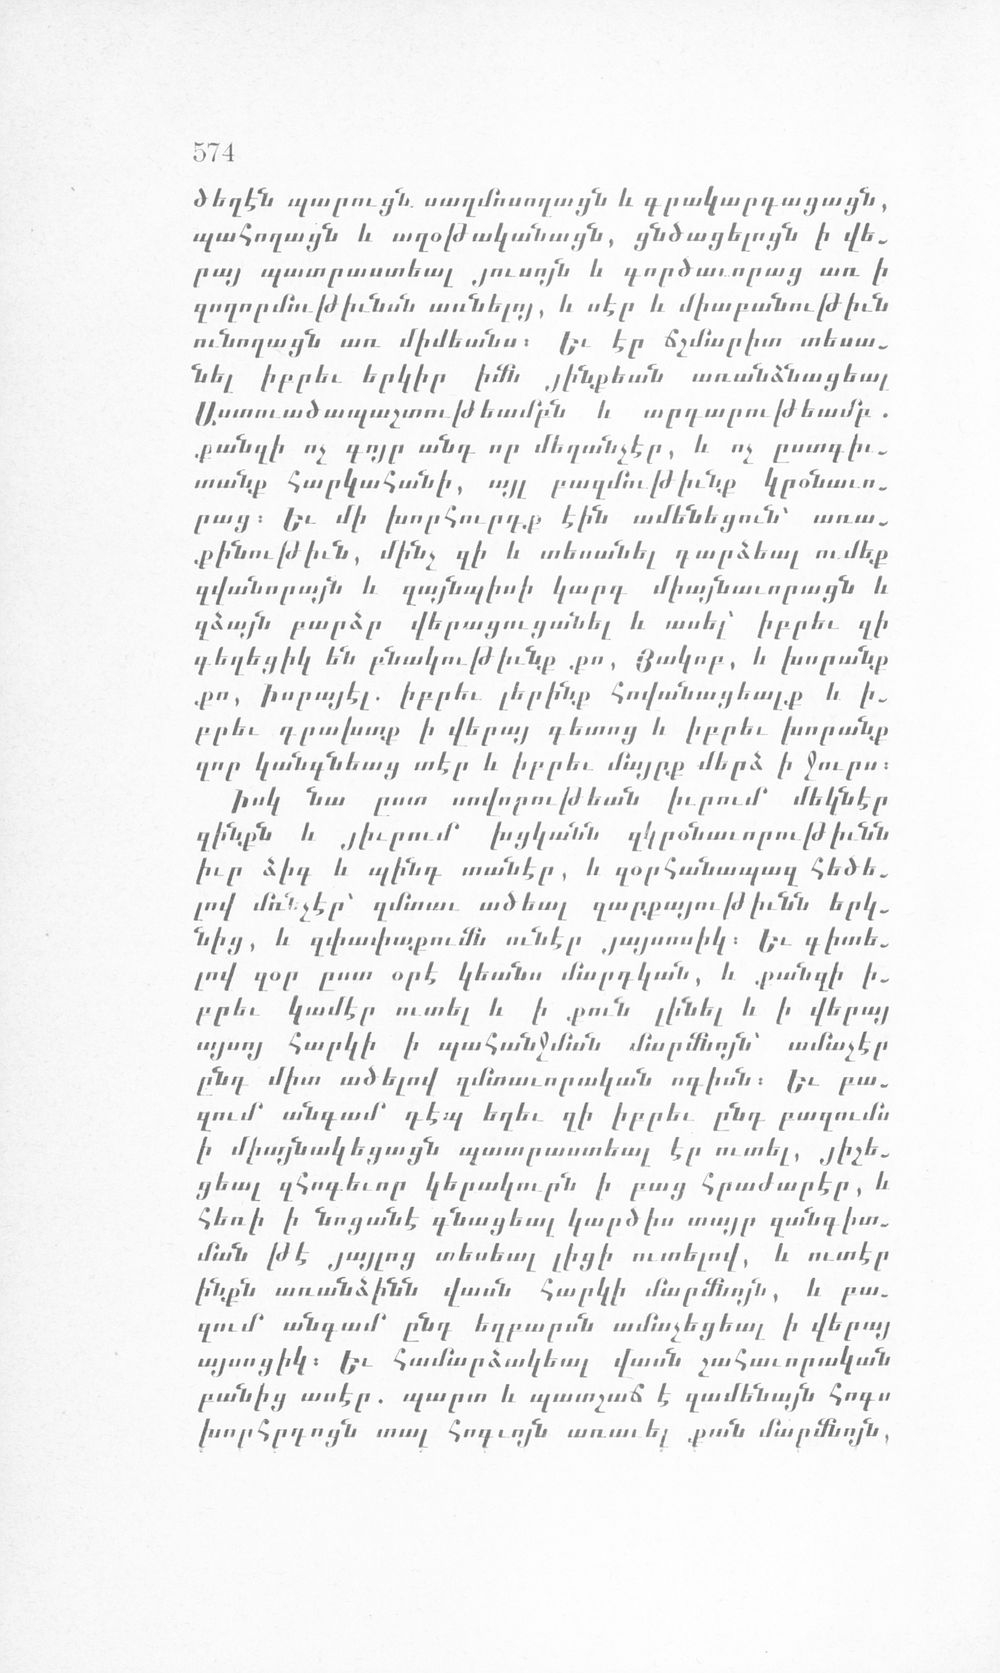 574
ծեղէն պարուցն սաղմոսողացն և գրակարդացացն,
պահողացն և աղօթականացն, ցնծացելոցն ի վե֊
րայ պատրաստեալ յուսոյն և գործաւորաց առ ի
զողորմութիւնսն առնելոյ, և սէր և միաբանութիւն
ունողացն առ միմեանս։ Եւ էր ճշմարիտ տեսա֊
նել իբրեւ երկիր իմն յինքեան առանձնացեալ
Աստուածապաշտութեամբն և արդարութեամբ.
քանզի ոչ գոյր անդ որ մեղանչէր, և ոչ ըստգիւ֊
տանք հարկահանի, այլ բազմութիւնք կրօնաւո֊
րաց։ Եւ մի խորհուրդք էին ամենեցուն՝ առա֊
քինութիւն, մինչ զի և տեսանել դարձեալ ումեք
զվանորայն և զայնպիսի կարգ միայնաւորացն և
զձայն բարձր վերացուցանել և ասել՝ իբրեւ զի
գեղեցիկ են բնակութիւնք քո, Յակոբ, և խորանք
քո, Իսրայէլ. իբրեւ լերինք հովանացեալք և ի֊
բրեւ դրախտք ի վերայ գետոց և իբրեւ խորանք
զոր կանգնեաց տէր և իբրեւ մայրք մերձ ի ջուրս։
Իսկ նա ըստ սովորութեան իւրում մեկնէր
զինքն և յիւրում խցկանն զկրօնաւորութիւնն
իւր ձիգ և պինդ տանէր, և զօրհանապազ հեծե֊
լով մնչէր՝ զմտաւ ածեալ զարքայութիւնն երկ֊
նից, և զփափաքումն ունէր յայսոսիկ։ Եւ գիտե֊
լով զօր ըստ օրէ կեանս մարդկան, և քանզի ի֊
բրեւ կամէր ուտել և ի քուն լինել և ի վերայ
այսոյ հարկի ի պահանջման մարմնոյն՝ ամաչէր
ընդ միտ ածելով զմտաւորական ոգիսն։ Եւ բա֊
զում անգամ դէպ եղեւ զի իբրեւ ընդ բազումս
ի միայնակեցացն պատրաստեալ էր ուտել, յիշե֊
ցեալ զհոգեւոր կերակուրն ի բաց հրաժարէր, և
հեռի ի նոցանէ գնացեալ կարծիս տայր զանգիտ֊
ման թէ յայլոց տեսեալ լիցի ուտելով, և ուտէր
ինքն առանձինն վասն հարկի մարմնոյն, և բա֊
զում անգամ ընդ եղբարսն ամաչեցեալ ի վերայ
այսոցիկ։ Եւ համարձակեալ վասն շահաւորական
բանից ասէր. պարտ և պատշաճ է զամենայն հոգս
խորհրդոցն տալ հոգւոյն առաւել քան մարմնոյն,